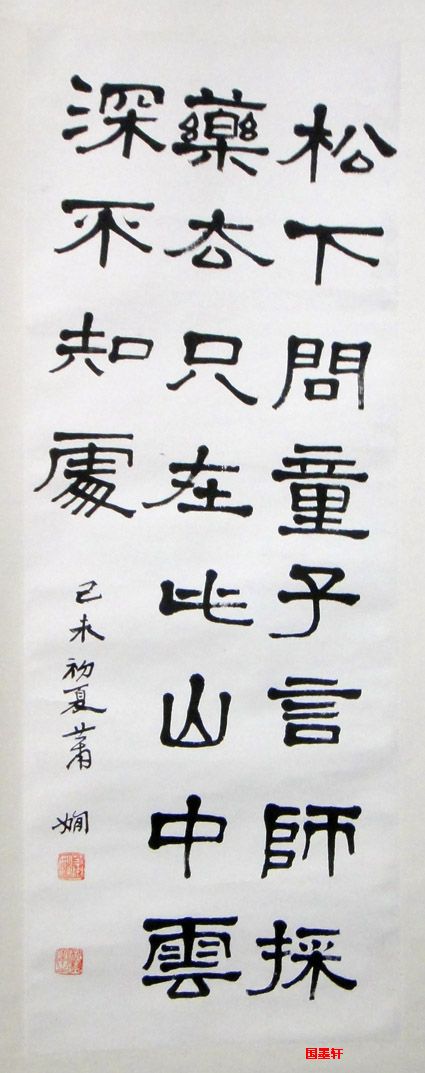 松下問童子言師採
藥去只在此山中雲
深不知處
己未初夏蕭嫻
国墨轩